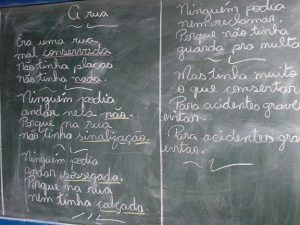 A rua
Era uma rua
mal conservada
Não tinha placas
não tinha nada.
Ninguém podia
andar nela não.
Porque na rua
não tinha sinalização.
Ninguém podia
andar sossegada.
Porque na rua
nem tinha calçada.
Ninguém podia
nem reclamar.
Porque não tinha
guarda pra multa
Mas tinha muito
o que consertar.
Para acidentes grave
entar.
Para acidentes gra
entar.